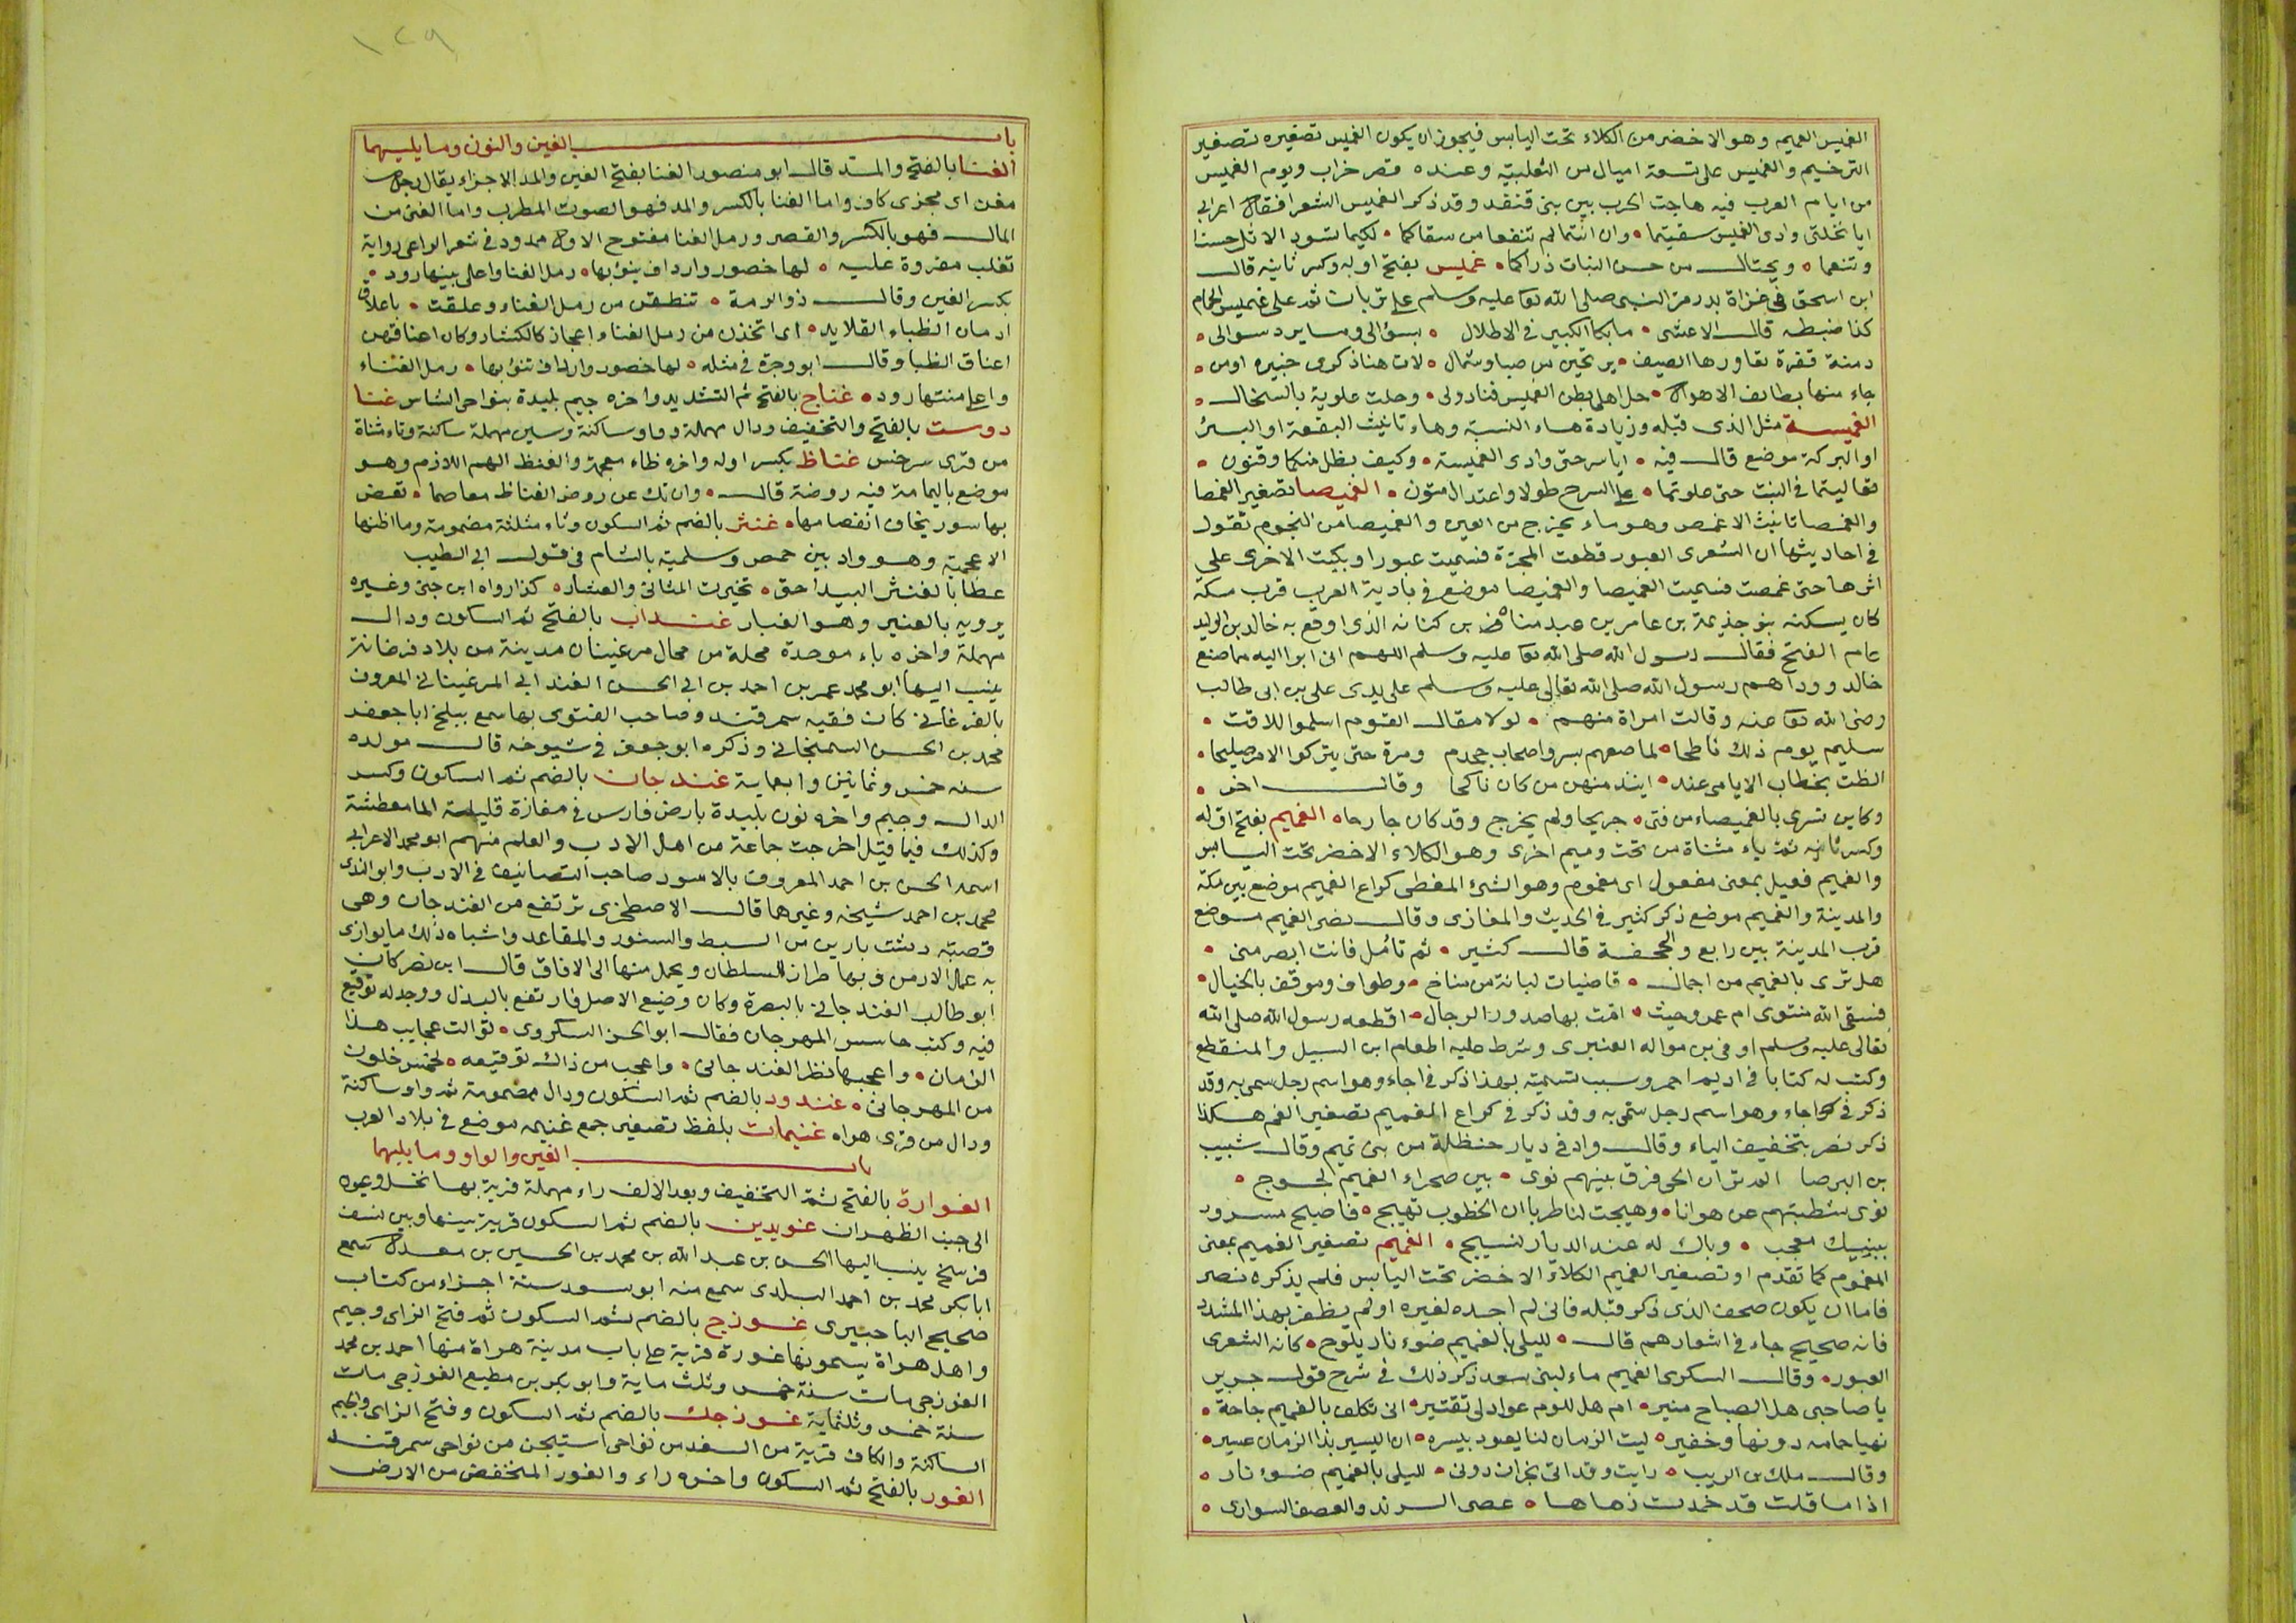 الغميس الغميم وهو الاخضر من الكلاء تحت اليابس فيجوز ان يكون الغميس تصغيره تصغير
الترخيم والغميس على تسعة اميال من الثعلبية وعنده قصر خراب ويوم الغميس
من ايام العرب فيه هاجت الحرب بين بنى قنفذ وقد ذكر الغميس الشعرا فقال اعرابي
ايا نخلتى وادى الغميس سقيتما وان انتما لم تنفعا من سقاكما لكيما تسود الاثل حسنا
وتنعما ويختال من حسن النبات ذراكما غميس بفتح اوله وكسر ثانيه قال
ابن اسحق في غزاة بدر مر النبى صلى الله تعا عليه وسلم على تربان ثم على غميس الحمام
كذا ضبطه قال الاعشى ما بكا الكبير في الاطلال بسؤالى وما يرد سوالى
دمنة قفرة تعاورها الصيف بريحين من صبا وشمال لات هنا ذكرى جبيره اومن
جاء منها بطائف الاهوال حل اهلى بطن الغميس فنادولى وحلت علوية بالسخال
الغميسة مثل الذى قبله وزيادة هاء النسبة وهاء تانيث البقعة او البئر
او البركة موضع قال فيه ايا سرحتى وادى الغميسة وكيف بظل منكما وقنون
تعاليتما في النبت حتى علوتما على السرح طولا واعتدال متون الغميصا تصغير الغمصا
والغمصا تانيث الاغمص وهو ماء يخرج من العين والغميصا من النجوم تقول
في احاديثها ان الشعرى العبور قطعت المجرة فسميت عبورا وبكيت الاخرى على
اثرها حتى غمصت فسميت الغميصا والغميصا موضع في بادية العرب قرب مكة
كان يسكنه بنو جذيمة بن عامر بن عبد مناف بن كنانه الذى اوقع به خالد بن الوليد
عام الفتح فقال رسول الله صلى الله تعا عليه وسلم اللهم انى ابرا اليه مما صنع
خالد ووداهم رسول الله صلى الله تعالى عليه وسلم على يدى على بن ابى طالب
رضى الله تعا عنه وقالت امراة منهم لولا مقال القوم اسلموا للاقت
سليم يوم ذلك ناطحا لماصعهم بسر واصحاب جحدم ومرة حتى يتركوا الامر صليحا
الظت بخطاب الايامى عند ايند منهن من كان ناكحا وقال اخر
وكاين ترى بالغميصاء من فتى جريحا ولم يخرج وقد كان جارحا الغميم بفتح اوله
وكسر ثانيه ثم ياء مثناة من تحت وميم اخرى وهو الكلاء الاخضر تحت اليابس
والغميم فعيل بمعنى مفعول اى مغموم وهو الشئ المغطى كراع الغميم موضع بين مكة
والمدينة والغميم موضع ذكر كثير في الحديث والمغازى وقال نصر الغميم موضع
قرب المدينة بين رابغ والجحفة قال كثير ثم تامل فانت ابصر منى
هل ترى بالغميم من اجمال قاضيات لبانة من مناخ وطواف وموقف بالخيال
فسقى الله منتوى ام عمرو حيث امت بها صدور الرجال اقطعه رسول الله صلى الله
تعالى عليه وسلم اوفى بن مواله العنبرى وشرط عليه اطعام ابن السبيل والمنقطع
وكتب له كتابا في اديم احمر وسبب تسميته بهذا ذكر في اجاء وهو اسم رجل سمى به وقد
ذكر في اجاء وهو اسم رجل سمى به وقد ذكر في كراع الغميم تصغير الغم هكذا
ذكر نصر بتخفيف الياء وقال واد في ديار حنظلة من بنى تميم وقال شبيب
بن البرصا الم تر ان الحى فرق بينهم نوى بين صحراء الغميم لجوج
نوى شطبتهم عن هوانا وهيجت لنا طربا ان الخطوب تهيج فاصبح مسرور
ببينك معجب وباك له عند الديار نسيج الغميم تصغير الغميم بمعنى
المغموم كما تقدم او تصغير الغميم الكلاء الاخضر تحت اليابس فلم يذكره نصر
فاما ان يكون صحف الذى ذكر قبله فانى لم اجده لغيره او لم يظفر بهذا المشدد
فانه صحيح جاء في اشعارهم قال لليلى بالغميم ضوء نار يلوح كانه الشعرى
العبور وقال السكرى الغميم ماء لبنى سعد ذكر ذلك في شرح قول جرير
يا صاحبى هل الصباح منير ام هل للوم عواد لى تفتير انى تكلف بالغميم حاجة
نهيا حمامه دونها وخفير ليت الزمان لنا يعود بيسره ان اليسير بذا الزمان عسير
وقال ملك بن الريب رايت وقد اتى نجران دونى لليلى بالغميم ضوء نار
اذا ما قلت قد خمدت زهاها عصى الرند والعصف السوارى
١٢٩
باب الغين والنون وما يليهما
الغنا بالفتح والمد قال ابو منصور الغنا بفتح الغين والمد الاجزاء يقال رجل
مغن اى مجزى كاف واما الغنا بالكسر والمد فهو الصوت المطرب واما الغنى من
المال فهو بالكسر والقصر ورمل الغنا مفتوح الاول ممدود في شعر الراعى رواية
تغلب مقروة عليه لها خصور وارداف ينوبها رمل الغنا واعلى بينها رود
بكسر الغين وقال ذو الرمة تنطقن من رمل الغناء وعلقت باعلاق
ادمان الظباء القلايد اى اتخذن من رمل الغنا اعجاز كالكثبان وكان اعناقهن
اعناق الظبا وقال ابو وجزة في مثله لها خصور وارداف تنوء بها رمل الغناء
واعلى منتها رود غناج بالفتح ثم التشديد واخره جيم بليدة بنواحى الشاس غنا
دوست بالفتح والتخفيف ودال مهملة وواو ساكنة وسين مهملة ساكنة وتاء مثناة
من قرى سرخس غناظ بكسر اوله واخره ظاء معجمة والغنظ الهم اللازم وهو
موضع باليمامة فيه روضة قال وان تك عن روض الغناظ معاصما تعض
بها سور يخاف انفصامها غنثر بالضم ثم السكون وثاء مثلثة مضمومة وما اظنها
الا عجمية وهو واد بين حمص وسلمية بالشام في قول ابى الطيب
عطا بالغنثر البيدا حق تخيرت المثانى والعشار كذا رواه ابن جنى وغيره
يرويه بالعنير وهو الغبار غنداب بالفتح ثم السكون ودال
مهملة واخره باء موحدة محلة من محال مرغينان مدينة من بلاد فرغانة
ينسب اليها ابو محمد عمر بن احمد بن ابى الحسن الغندابى المرغينانى المعروف
بالفرغانى كان فقيه سمرقند وصاحب الفتوى بها سمع ببلخ ابا جعفر
محمد بن الحسن السمنجانى وذكره ابو جعفر في شيوخه قال مولده
سنه خمس وثمانين واربعماية غندجان بالضم ثم السكون وكسر
الدال وجيم واخره نون بليدة بارض فارس في مفازة قليلة الما معطشة
وكذلك فيما قيل اخرجت جماعة من اهل الادب والعلم منهم ابو محمد الاعرابى
اسمه الحسن بن احمد المعروف بالاسود صاحب التصانيف في الادب وابو الندى
محمد بن احمد شيخه وغيرهما قال الاصطخرى ترتفع من الغندجان وهى
قصبة دشت بارين من البسط والستور والمقاعد واشباه ذلك ما يوازى
به عمل الارمن وبها طراز للسلطان ويحمل منها الى الافاق قال ابن نصر كان
ابو طالب الغندجانى بالبصرة وكان وضيع الاصل فارتفع بالبذل ووجد له توقيع
فيه وكتب خامس المهرجان فقال ابو الحسن السكروى توالت عجايب هذا
الزمان واعجبها نظر الغندجانى واعجب من ذاك توقيعه لخمس خلون
من المهرجانى غندود بالضم ثم السكون ودال مضمومة ثم واو ساكنة
ودال من قرى هراه غنيمات بلفظ تصغير جمع غنيمه موضع في بلاد العرب
باب الغين والواو وما يليهما
الغوارة بالفتح ثم التخفيف وبعد الالف راء مهملة قرية بها نخل وعيون
الى جنب الظهران غوبدين بالضم ثم السكون قرية بينها وبين نسف
فرسخ ينسب اليها الحسن بن عبد الله بن محمد بن الحسين بن معدل سمع
ابا بكر محمد بن احمد البلدى سمع منه ابو سعد ستة اجزاء من كتاب
صحيح البا حبيرى غوزج بالضم ثم السكون ثم فتح الزاى وجيم
واهل هراة يسمونها غورة قرية على باب مدينة هراة منها احمد بن محمد
الغوزجى مات سنة خمس وثلث ماية وابو بكر بن مطيع الغوزجى مات
سنة خمس وثلثماية غوزجك بالضم ثم السكون وفتح الزاى والجيم
الساكنة والكاف قرية من السغد من نواحى استيجن من نواحى سمرقند
الغور بالفتح ثم السكون واخره راء والغور المنخفض من الارض